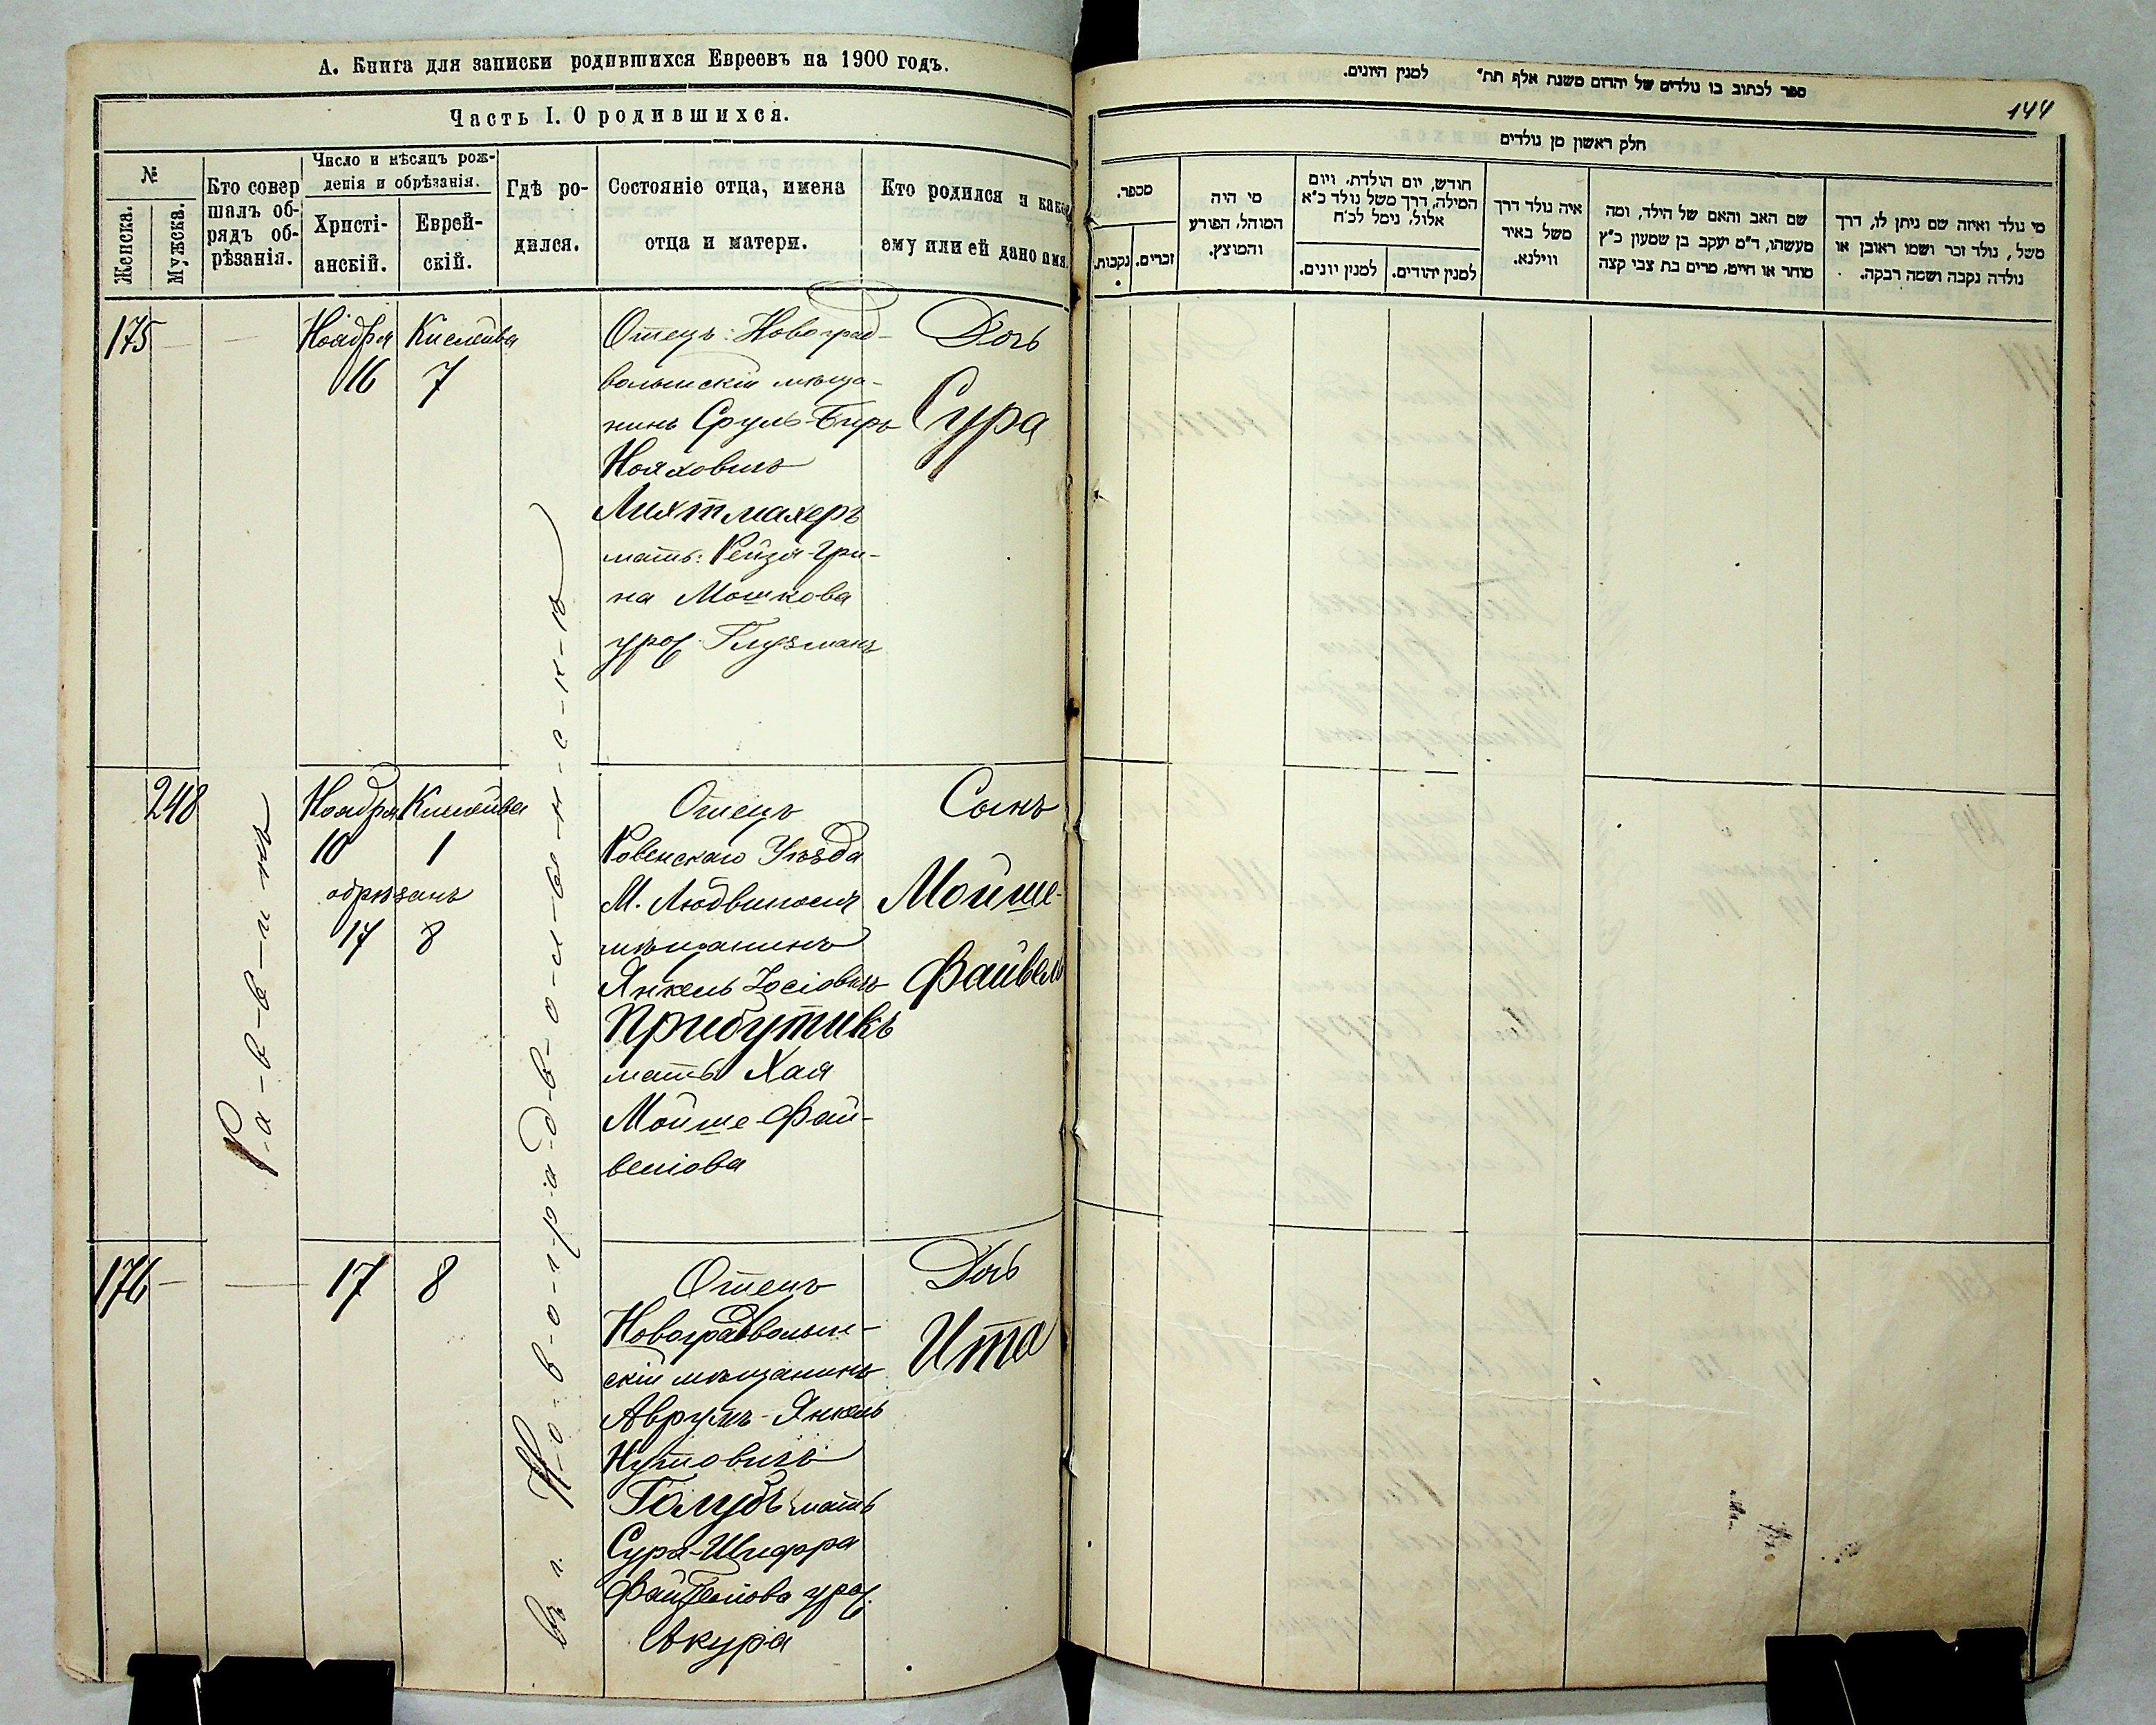 А. Книга для записки родившихся Евреевъ на 1900 годъ.
Часть I. О родившихся.
№
Женска.
Мужска.
Кто совер
шалъ об-
рядъ об-
рѣзанія.
Число и мѣсяцъ рож-
денія и обрѣзанія.
Христі-
анскій.
Еврей-
скій.
Гдѣ ро-
дился.
Состояніе отца, имена
отца и матери.
Кто родился и какое
ему или ей дано имя.
175 — —
Ноября
16
Кислейва
7
Отецъ: Новоград-
волынскій мѣща-
нинъ Сруль-Беръ
Нояховичъ
Лихтмахеръ
мать: Рейзя-Гри-
на Мошкова
урож. Глузманъ
Дочь
Сура
248
Ноября
10
Кислейва
1
обрѣзанъ
17 8
Отецъ
Ровенскаго Уѣзда
М. Людвиполя
мѣщанинъ
Янкель Іосіовичъ
Прибутикъ
мать Хая
Мойше-Фай-
веліова
Сынъ
Мойше-
Файвель
176 — —
17 8
Отецъ
Новоградволын-
скій мѣщанинъ
Аврумъ-Янкель
Нутовичъ
Голубъ мать
Сура-Шифра
урож.
Дочь
Ита
Р-а-в-в-и-нъ
въ г. Н-о-в-о-г-р-а-д-в-о-л-ы-н-с-к-ѣ
ספר לכתוב בו נולדים של יהדום משנת אלף תת״ למנין היונים.
144
חלק ראשון מן נולדים
מספר.
נקבות.
זכרים.
מי היה
המוהל, הפורע
והמוצץ.
חודש, יום הולדת, ויום
המילה, דרך משל נולד כ״א
אלול, נימל לכ״ח
למנין יונים.
למנין יהודים.
איה נולד דרך
משל באיר
ווילנא.
שם האב והאם של הילד, ומה
מעשהו, ד״מ יעקב בן שמעון כ״ץ
סוחר או חייט, מרים בת צבי קצה
מי נולד ואיזה שם ניתן לו, דרך
משל, נולד זכר ושמו ראובן או
נולדה נקבה ושמה רבקה.